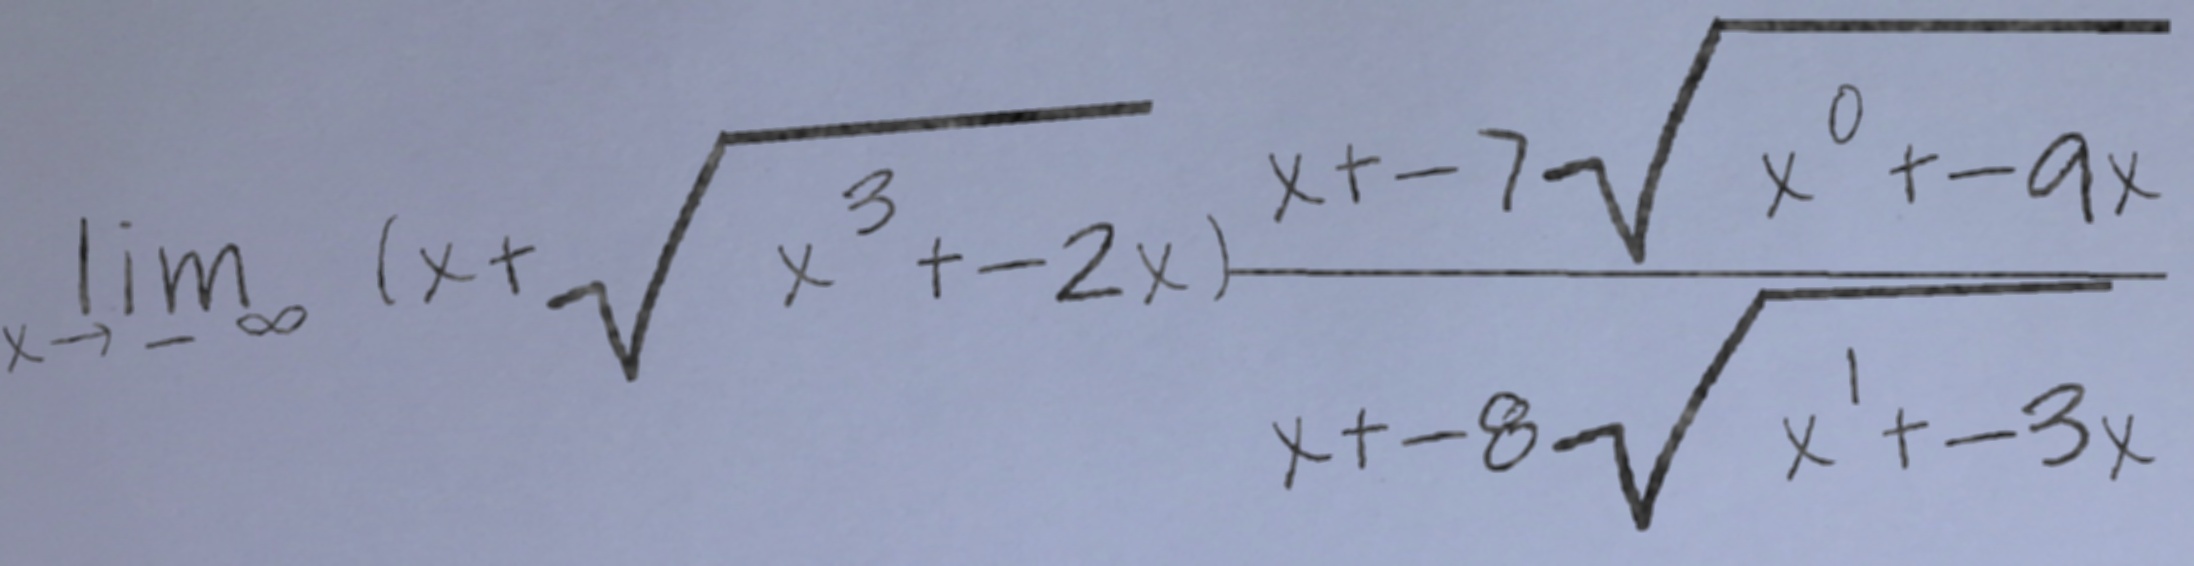 \lim_{x \to -\infty} (x + \sqrt{x^3 + -2x}) \frac{x + -7\sqrt{x^0 + -9x}}{x + -8\sqrt{x^1 + -3x}}